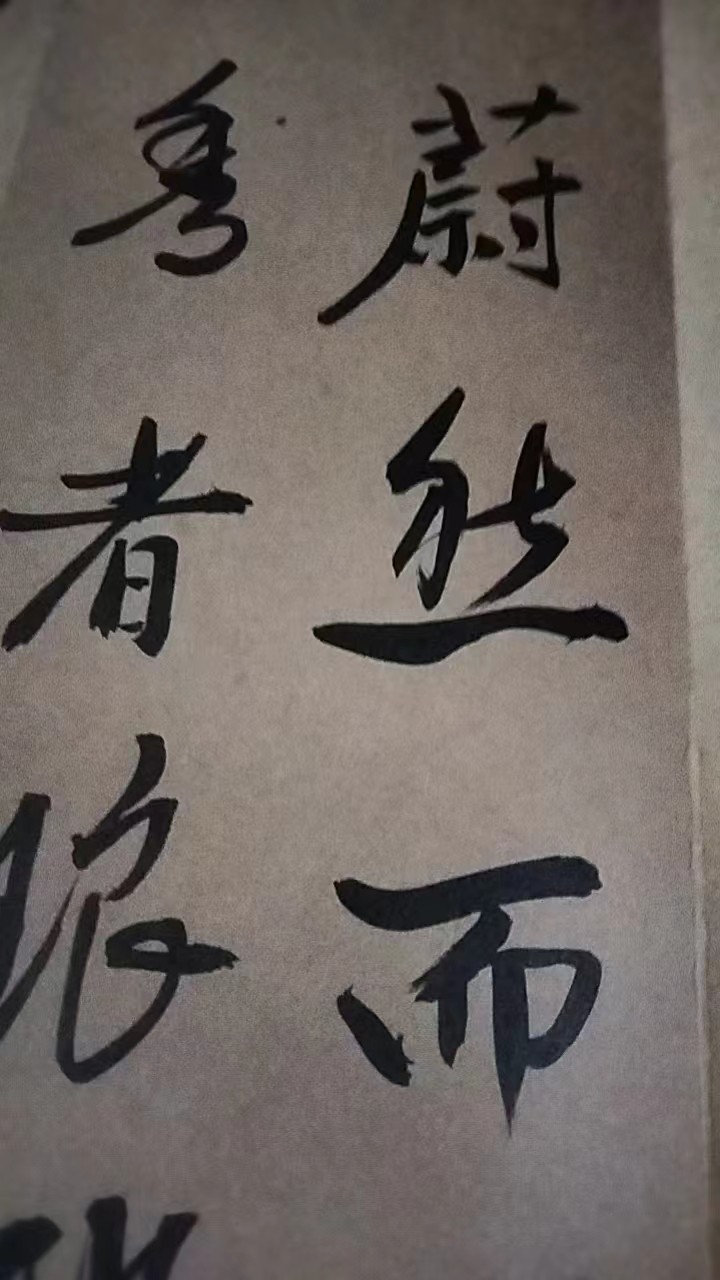 蔚然而
秀者琅